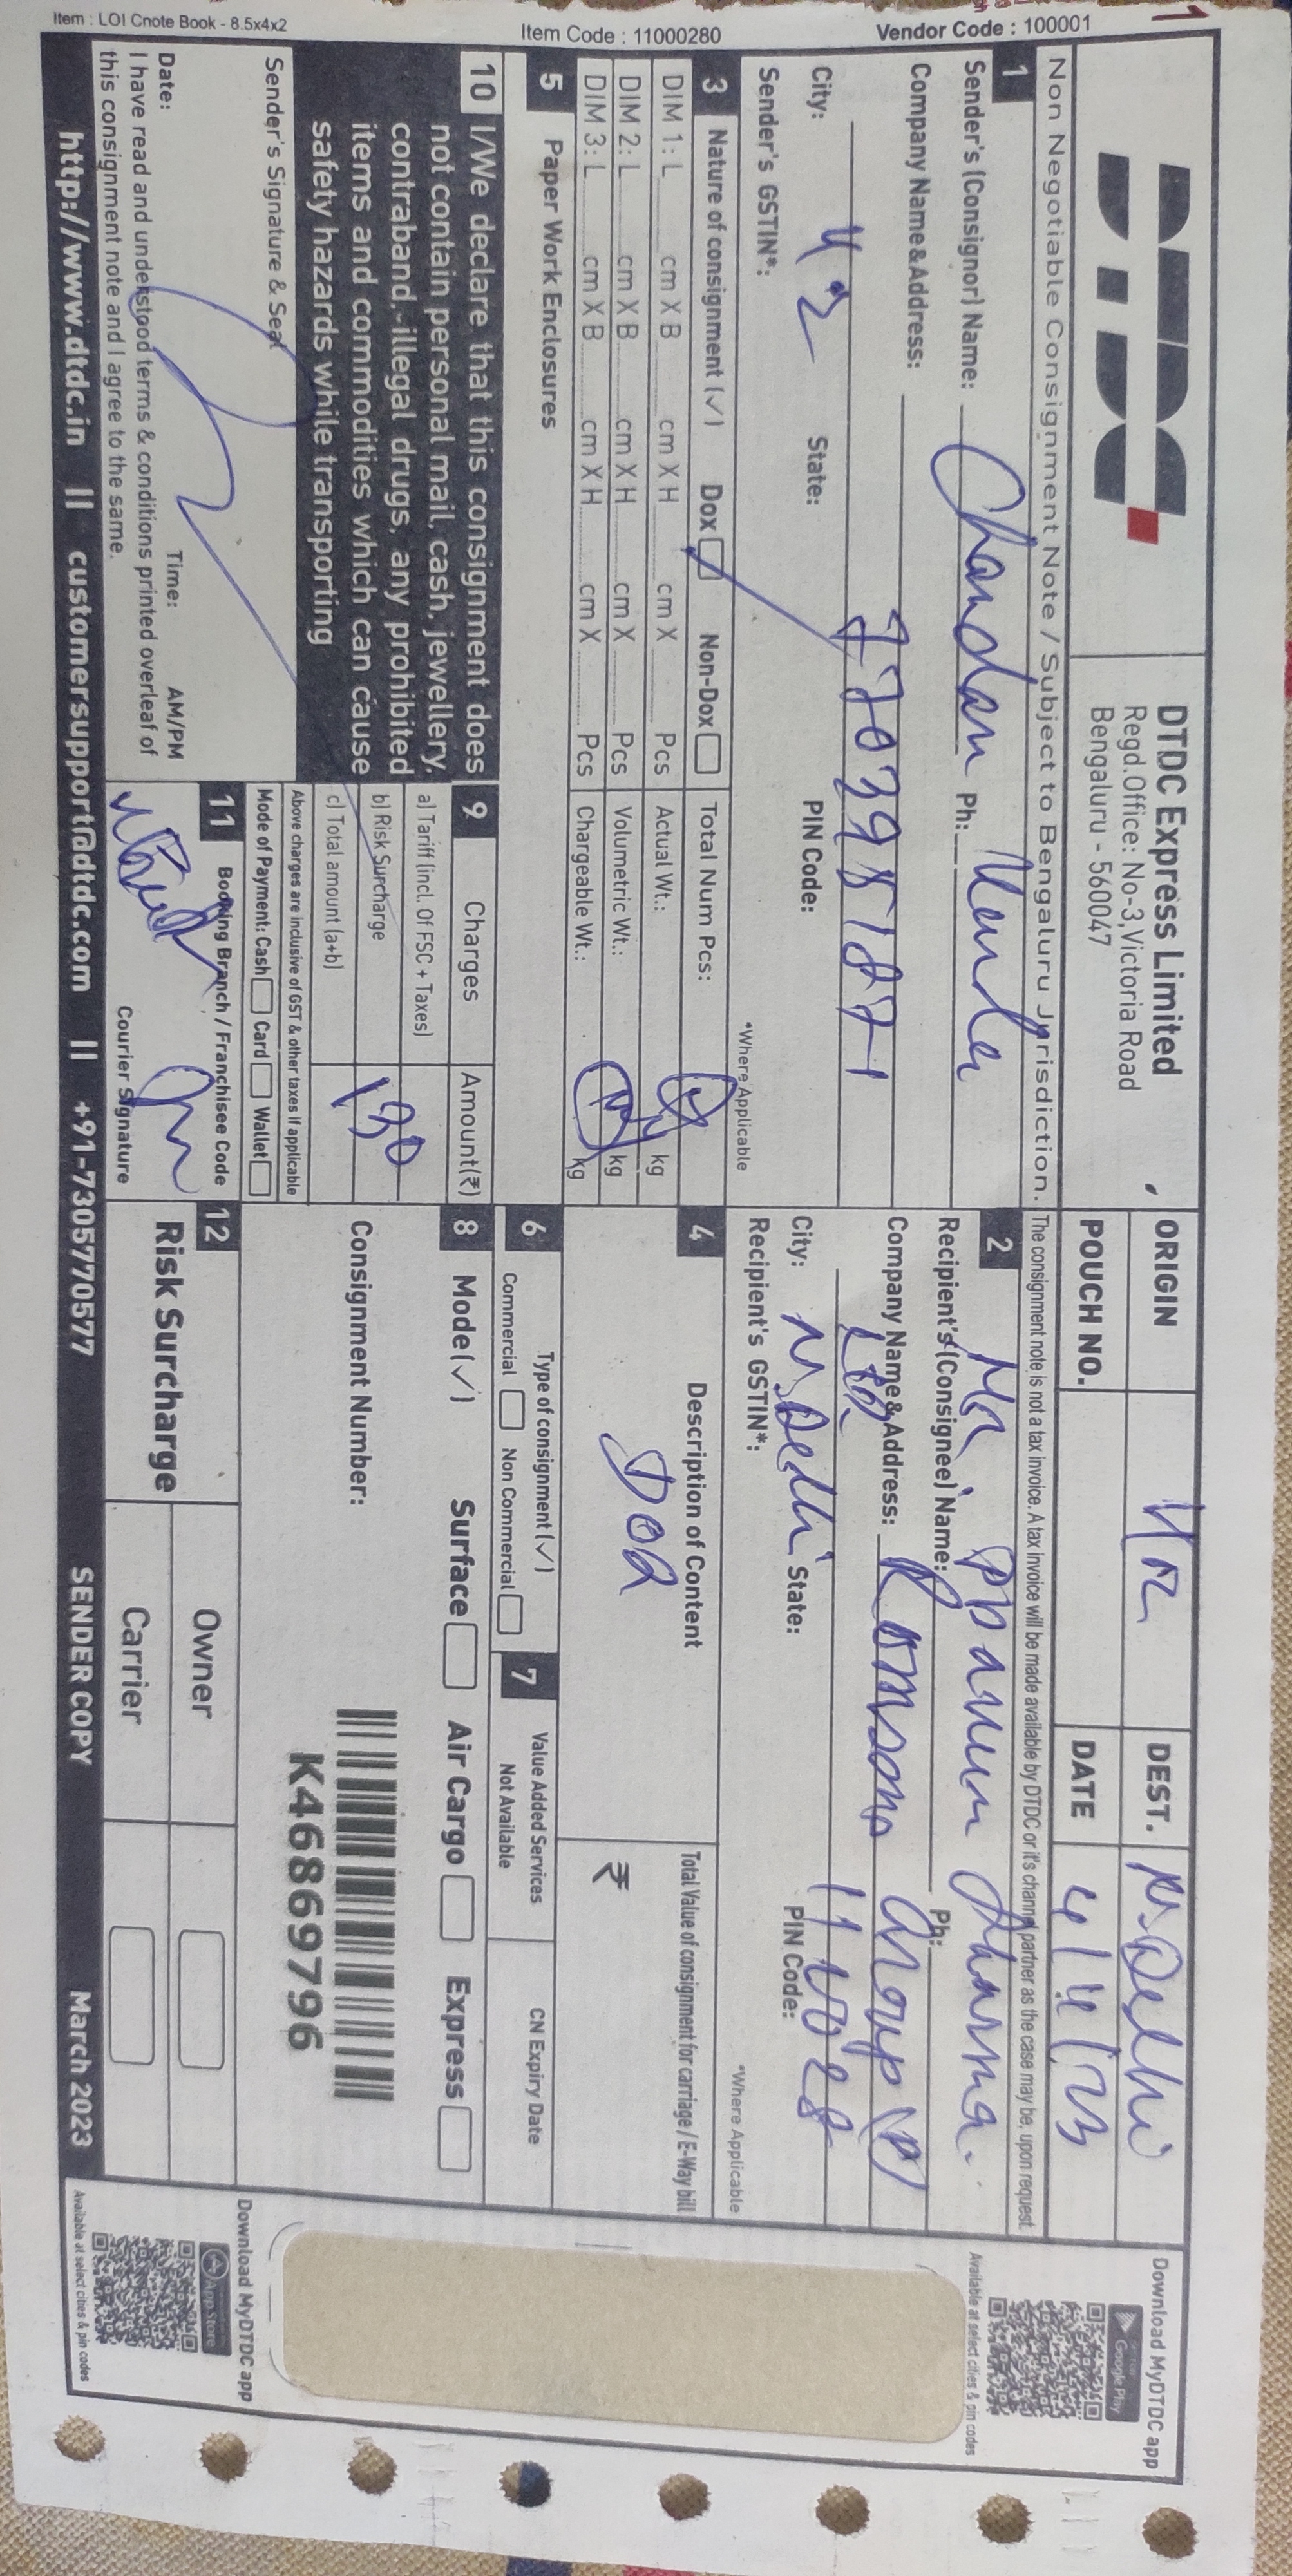 Item : LOI Cnote Book - 8.5x4x2
Item Code : 11000280
Vendor Code : 100001
1
DTDC
DTDC Express Limited
Regd.Office: No-3,Victoria Road
Bengaluru - 560047
ORIGIN
DEST. N.Delhi
POUCH NO.
DATE 4/4/23
Non Negotiable Consignment Note / Subject to Bengaluru Jurisdiction.
The consignment note is not a tax invoice. A tax invoice will be made available by DTDC or it's channel partner as the case may be, upon request
1
Sender's (Consignor) Name: Chandan Ph:
Company Name&Address:
City: State: PIN Code:
Sender's GSTIN*:
*Where Applicable
2
Recipient's (Consignee) Name: Sharma Ph:
Company Name& Address: Romsons Group (P)
Ltd.
City: N.Delhi State: PIN Code:
Recipient's GSTIN*:
*Where Applicable
3 Nature of consignment (✓) Dox Non-Dox Total Num Pcs:
DIM 1: L cm X B cm X H cm X Pcs Actual Wt.: kg
DIM 2: L cm X B cm X H cm X Pcs Volumetric Wt.: kg
DIM 3: L cm X B cm X H cm X Pcs Chargeable Wt.: kg
4 Description of Content
Total Value of consignment for carriage / E-Way bill
₹
5 Paper Work Enclosures
6 Type of consignment (✓)
Commercial Non Commercial
7 Value Added Services
Not Available
CN Expiry Date
8 Mode (✓) Surface Air Cargo Express
Consignment Number:
K46869796
9 Charges Amount(₹)
a) Tariff (incl. Of FSC + Taxes)
b) Risk Surcharge 130
c) Total amount (a+b)
Above charges are inclusive of GST & other taxes if applicable
Mode of Payment: Cash Card Wallet
10 I/We declare that this consignment does
not contain personal mail, cash, jewellery,
contraband, illegal drugs, any prohibited
items and commodities which can cause
safety hazards while transporting
Sender's Signature & Seal
Date: Time: AM/PM
I have read and understood terms & conditions printed overleaf of
this consignment note and I agree to the same.
11 Booking Branch / Franchisee Code
Courier Signature
12 Risk Surcharge
Owner
Carrier
http://www.dtdc.in || customersupport@dtdc.com || +91-7305770577 SENDER COPY March 2023
Download MyDTDC app
GET IT ON
Google Play
Available at select cities & pin codes
Download MyDTDC app
App Store
Available at select cities & pin codes